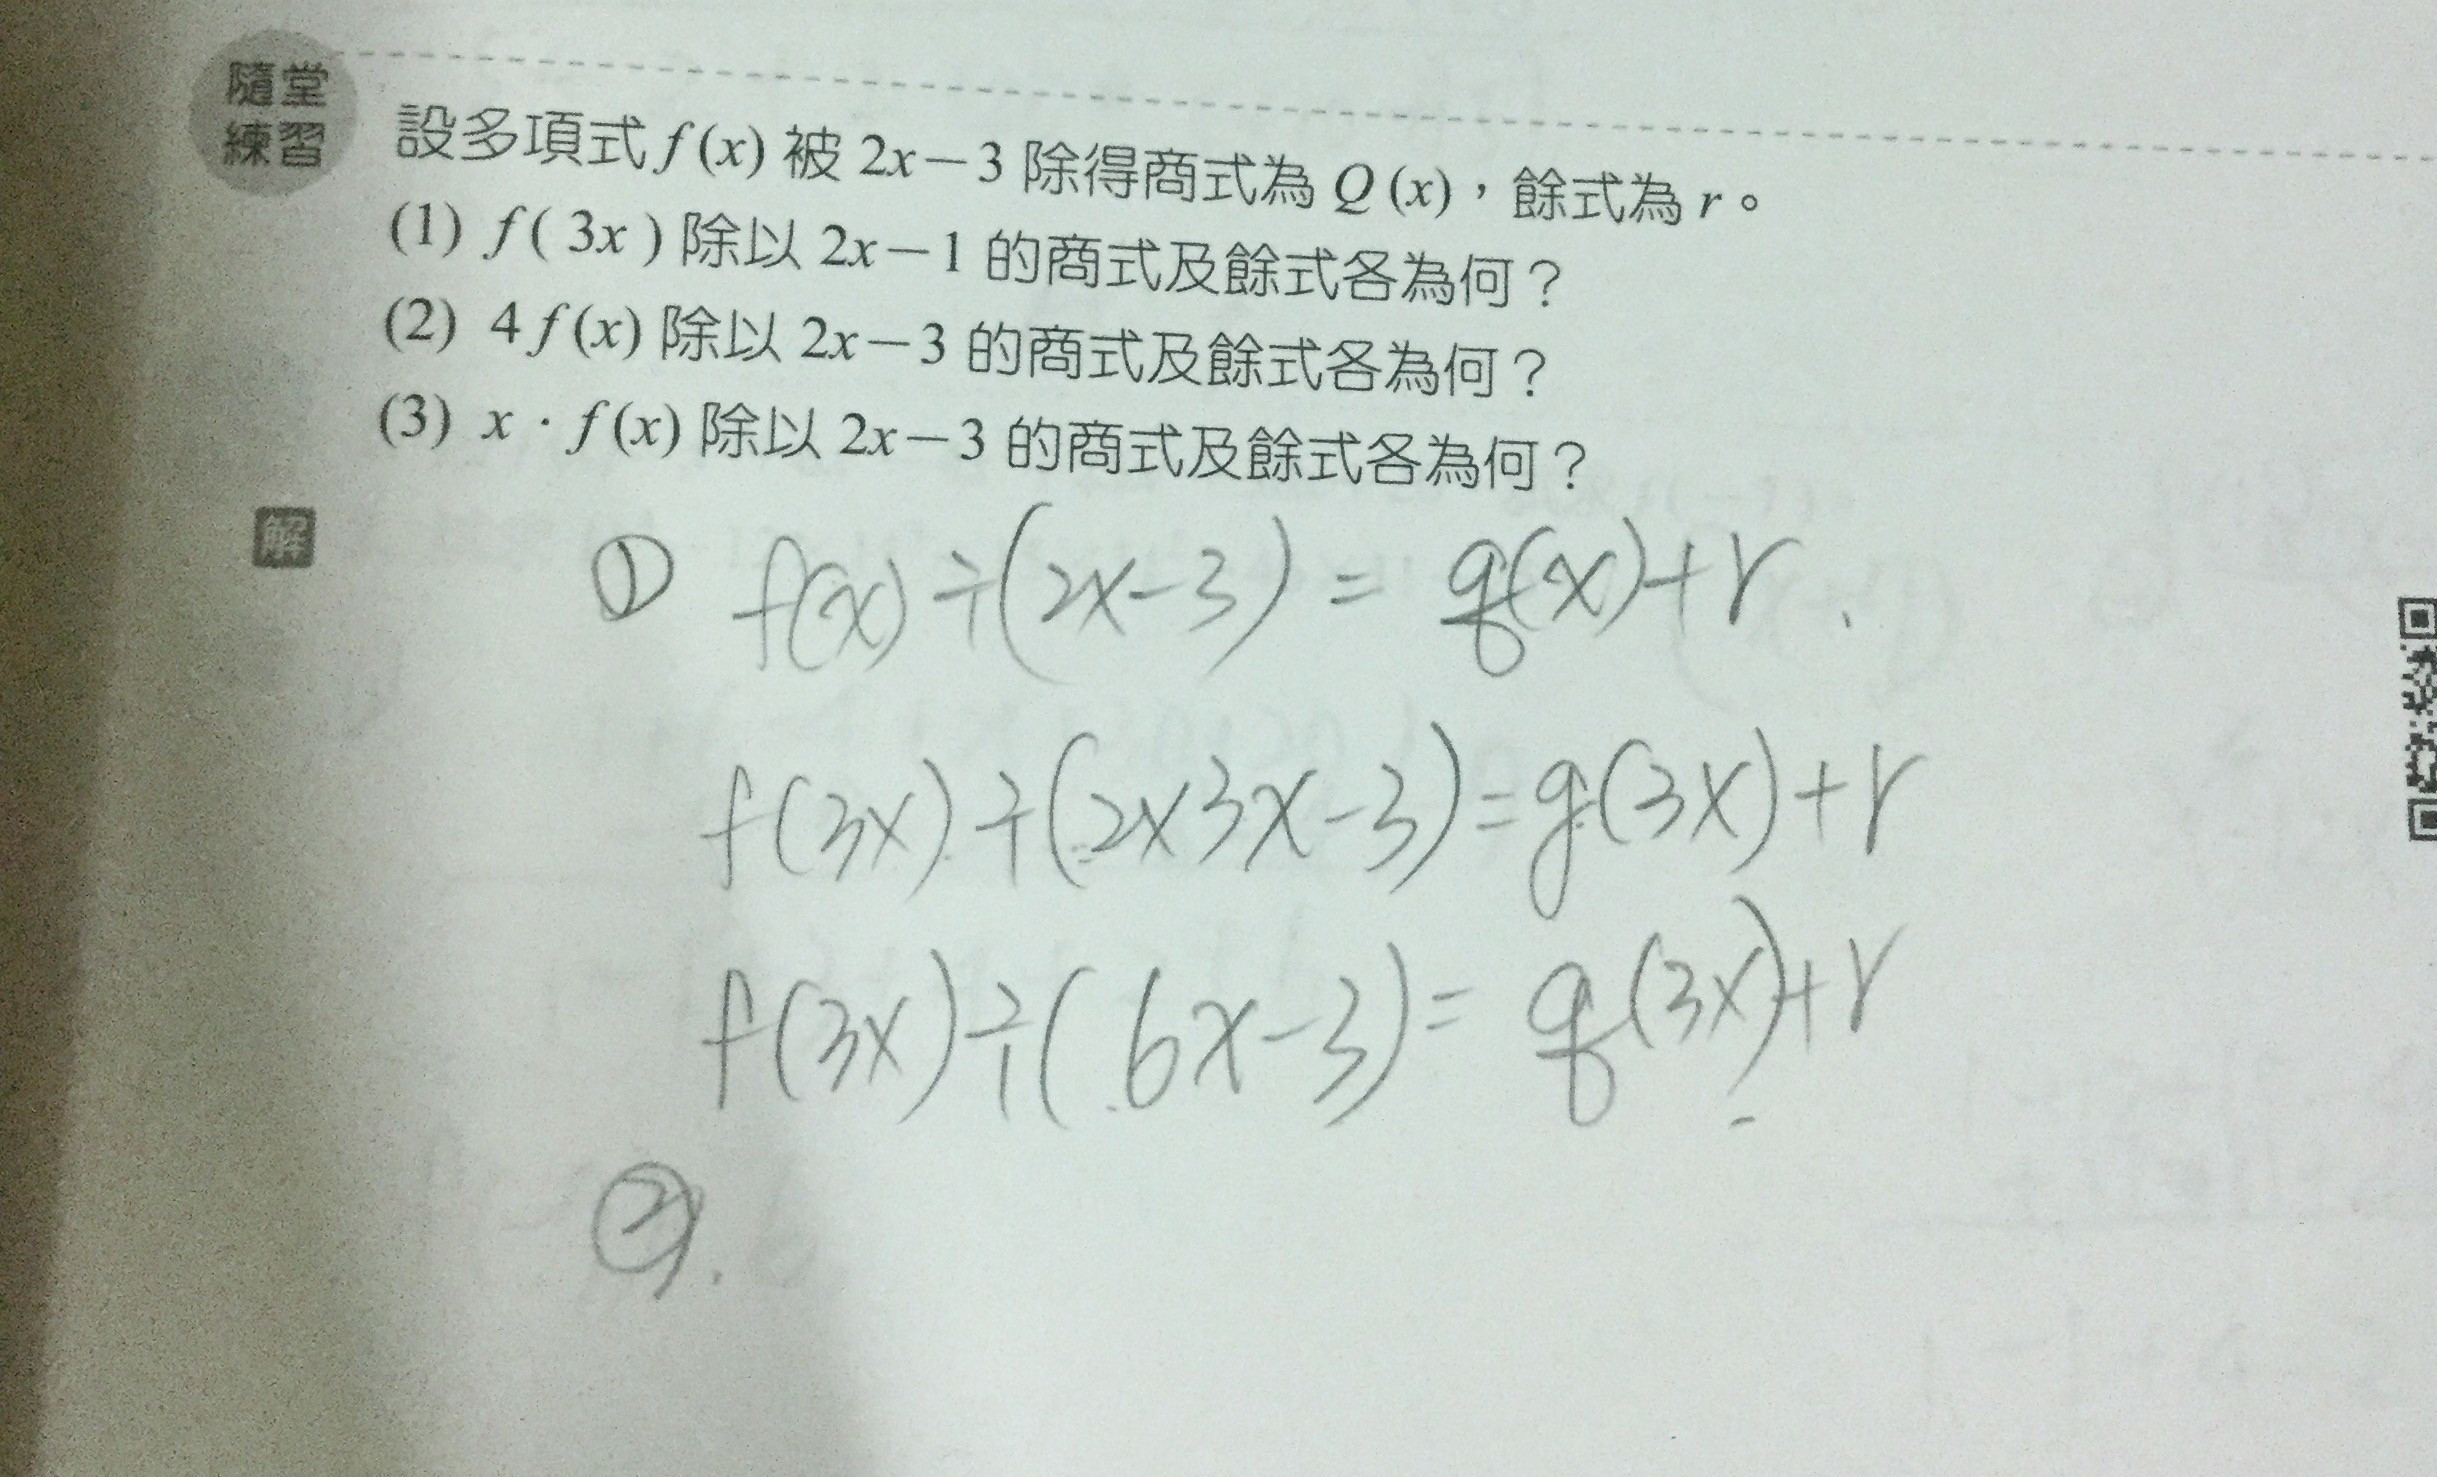 隨堂
練習
設多項式 f (x) 被 2x－3 除得商式為 Q (x)，餘式為 r。
(1) f ( 3x ) 除以 2x－1 的商式及餘式各為何？
(2) 4 f (x) 除以 2x－3 的商式及餘式各為何？
(3) x · f (x) 除以 2x－3 的商式及餘式各為何？
解
① f(x)÷(2x-3) = q(x)+r
f(3x)÷(2×3x-3)=q(3x)+r
f(3x)÷(6x-3)= q(3x)+r
②